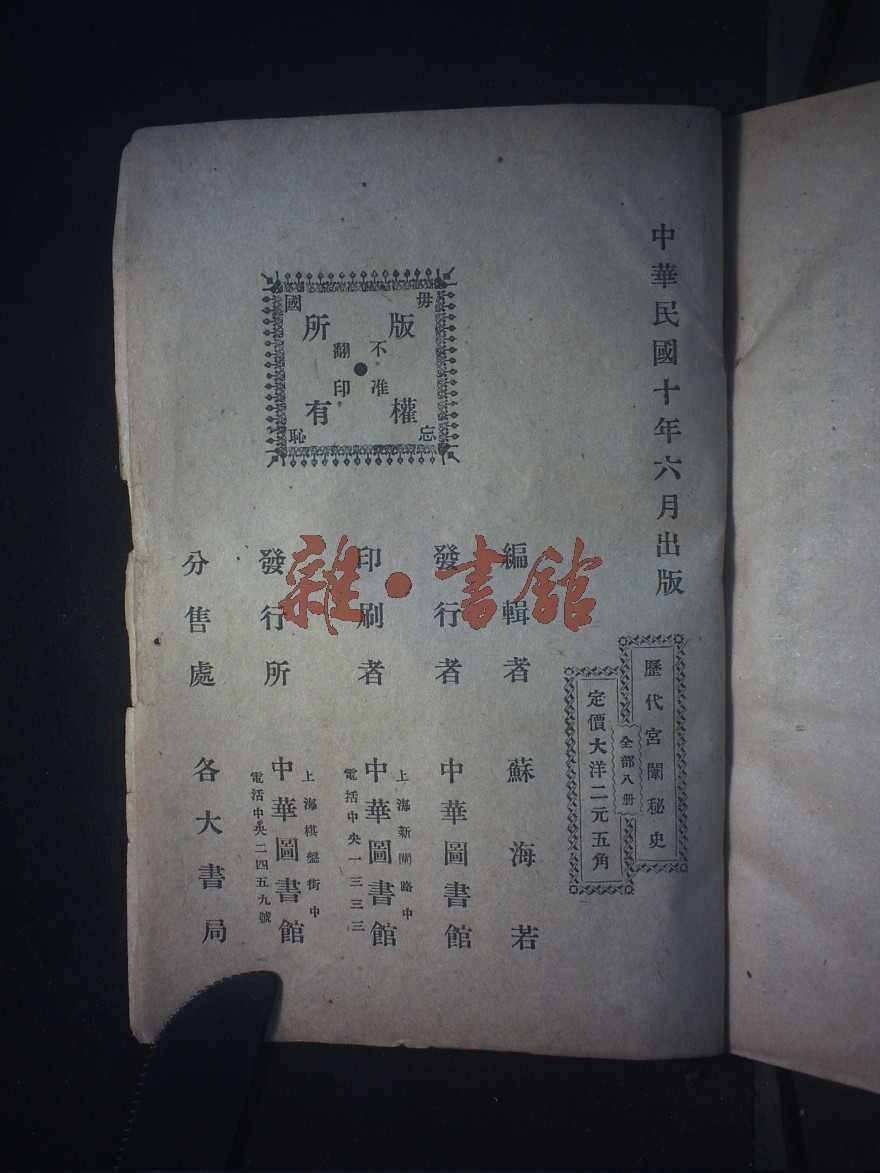 中華民國十年六月出版
歷代宮闈秘史
全部八册
定價大洋二元五角
毋忘國恥
版權所有
不准翻印
編輯者 蘇海若
發行者 中華圖書館
印刷者 中華圖書館
上海新閘路中
電括中央一三三三
發行所 中華圖書館
上海棋盤街中
電活中央二四五九號
分售處 各大書局
雜·書館